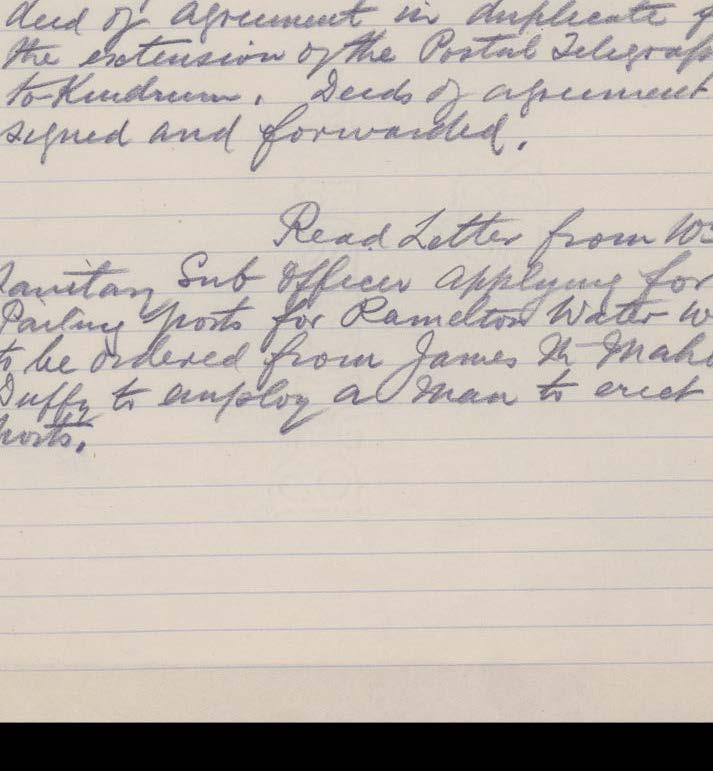 deed of agreement in duplicate f
the extension of the Postal Telegrap
to Kindrum. Deeds of agreement
signed and forwarded.
Read Letter from W
Sanitary Sub Officer applying for
Pailing posts for Ramelton Water W
to be ordered from James Mc Maho
Duffy to employ a man to erect
posts.